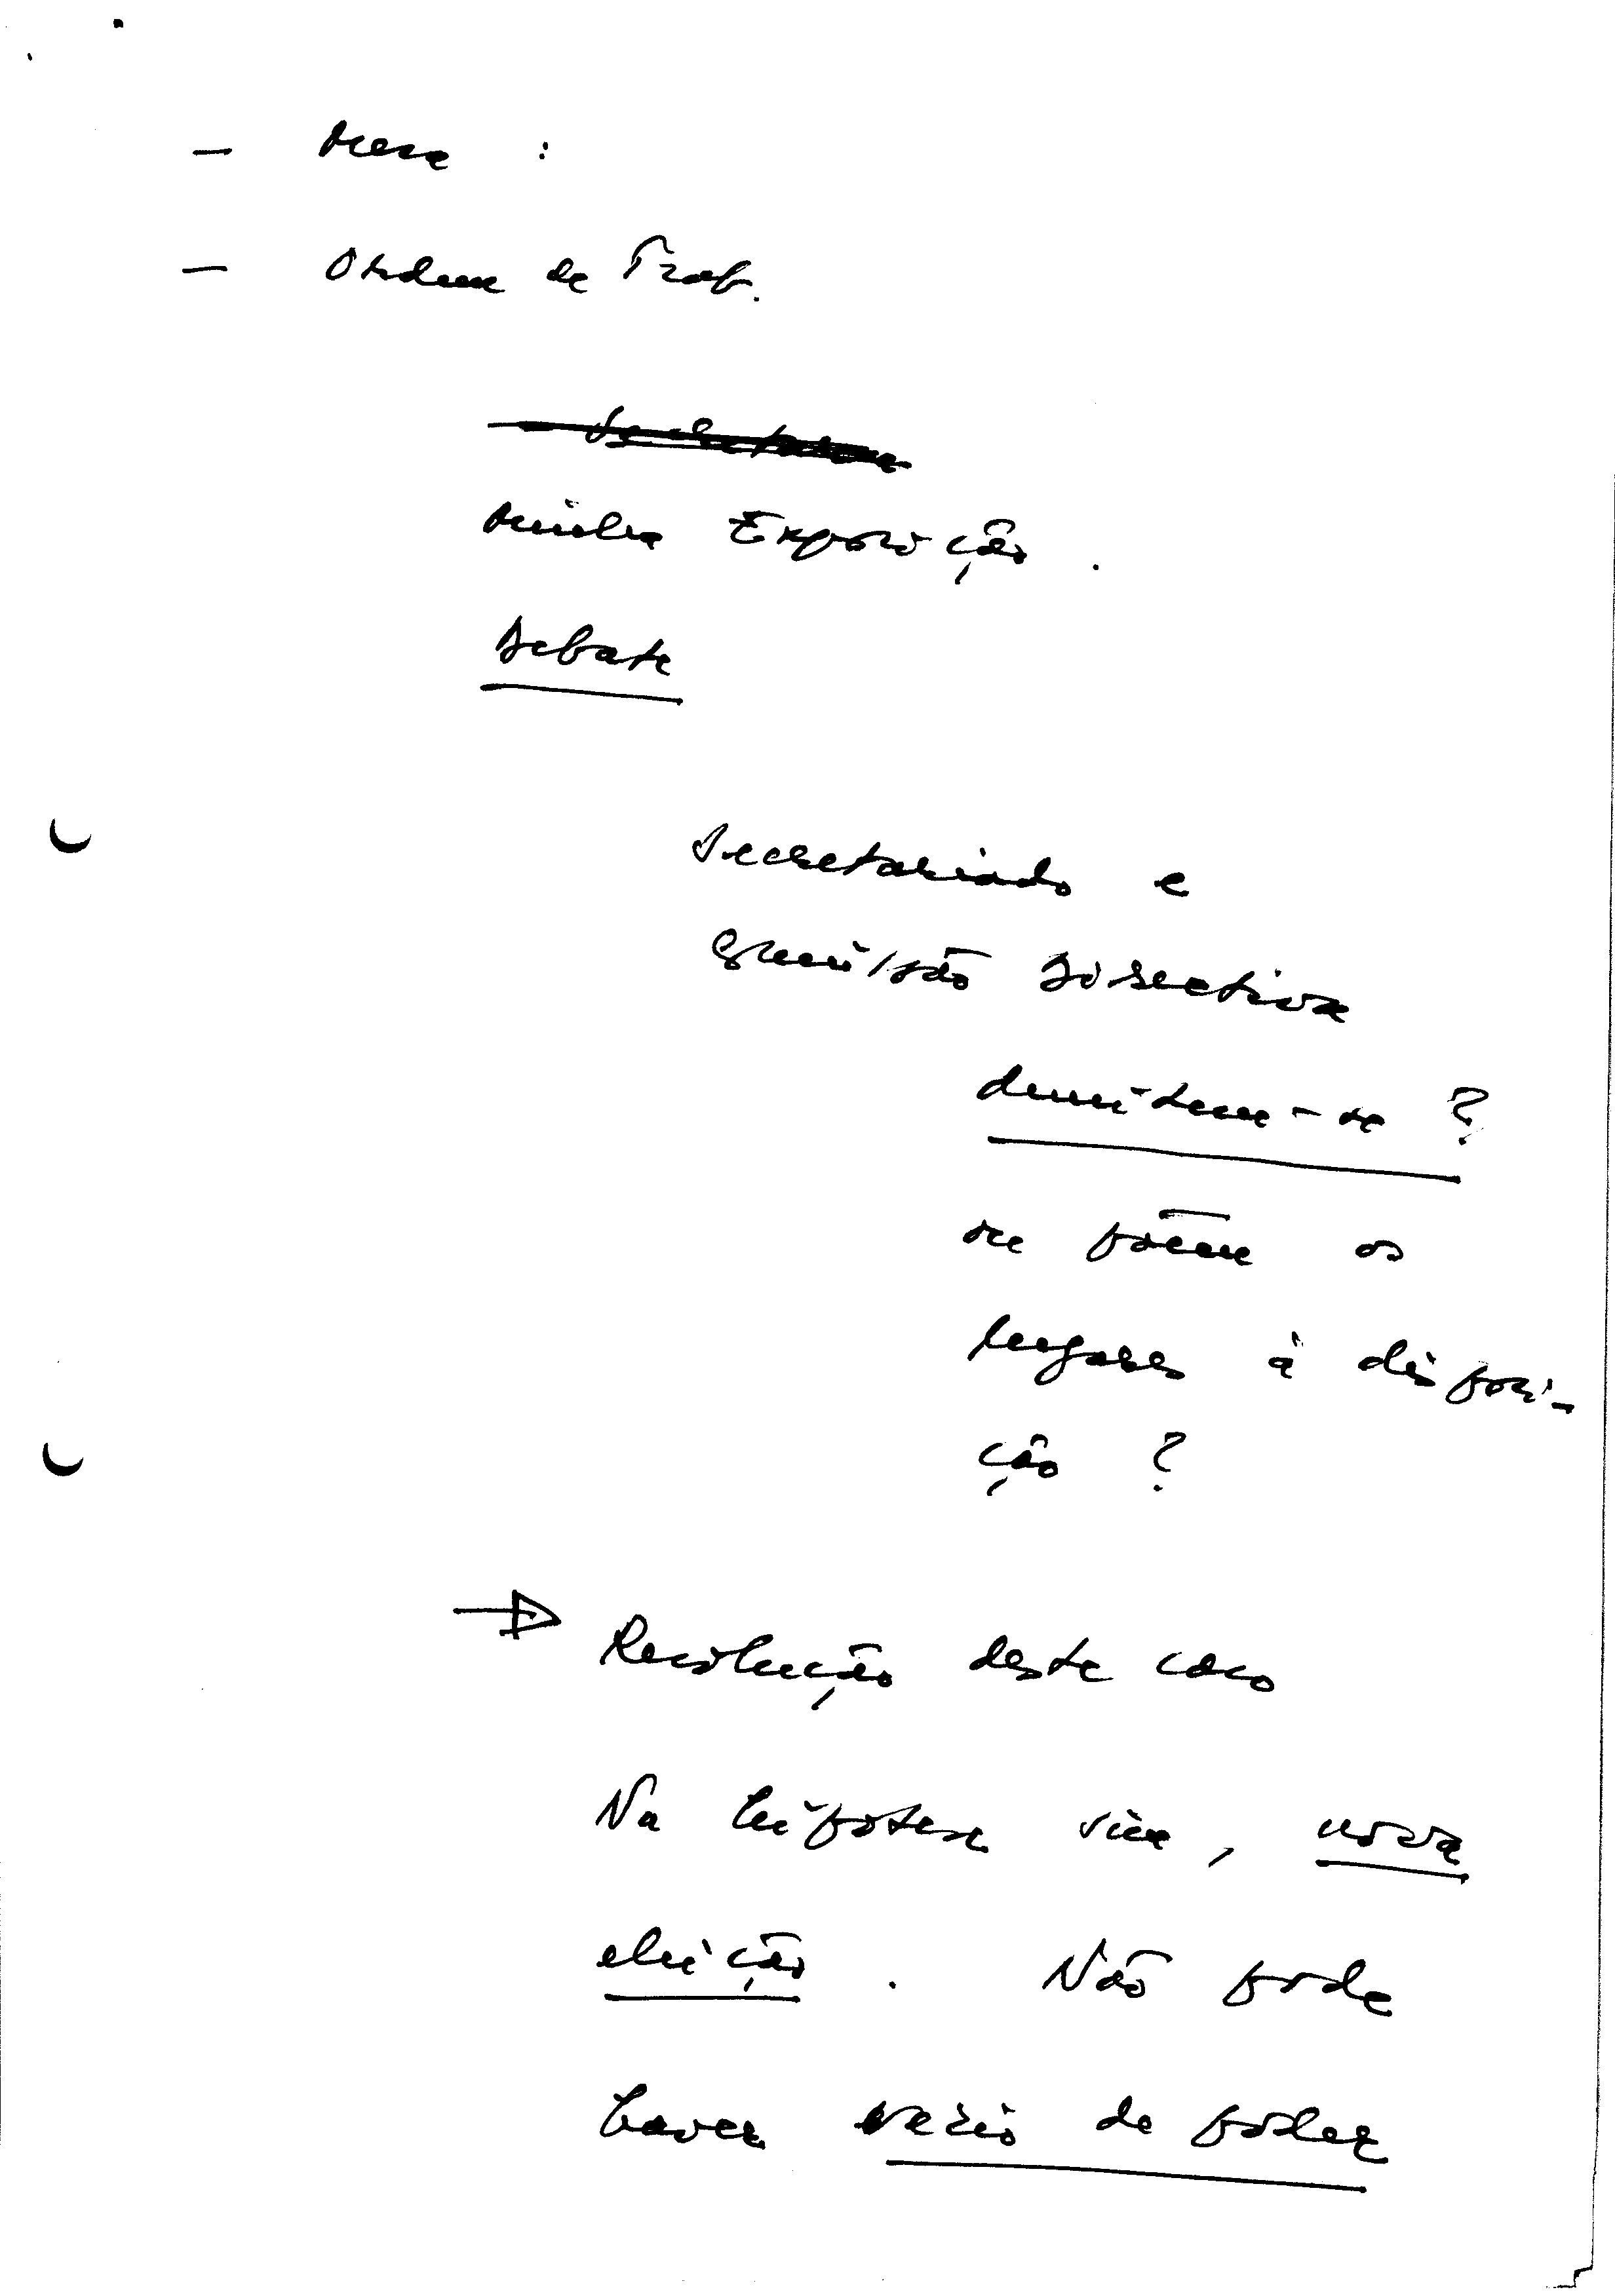 — Mesa :
— Ordem de Trab.
Minha Exposição.
Debate
Secretariado e
Comissão Directiva
demitem-se ?
ou põem os
lugares à disposi-
ção ?
Resolução deste caso
Na hipótese sim, nova
eleição. Não pode
haver vazio de poder